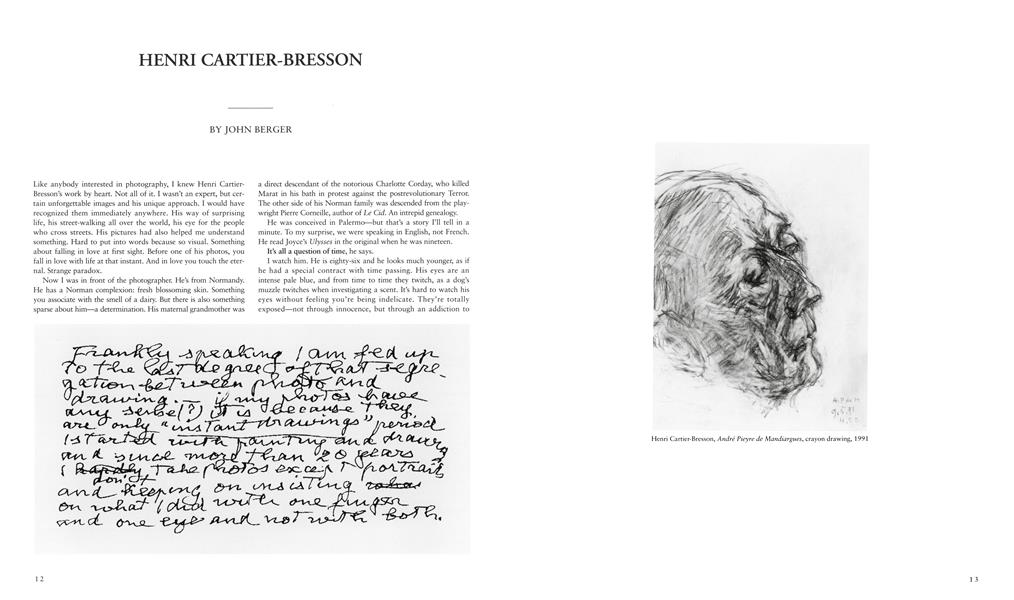 HENRI CARTIER-BRESSON
BY JOHN BERGER
Like anybody interested in photography, I knew Henri Cartier-
Bresson's work by heart. Not all of it. I wasn't an expert, but cer-
tain unforgettable images and his unique approach. I would have
recognized them immediately anywhere. His way of surprising
life, his street-walking all over the world, his eye for the people
who cross streets. His pictures had also helped me understand
something. Hard to put into words because so visual. Something
about falling in love at first sight. Before one of his photos, you
fall in love with life at that instant. And in love you touch the eter-
nal. Strange paradox.
Now I was in front of the photographer. He's from Normandy.
He has a Norman complexion: fresh blossoming skin. Something
you associate with the smell of a dairy. But there is also something
sparse about him—a determination. His maternal grandmother was
a direct descendant of the notorious Charlotte Corday, who killed
Marat in his bath in protest against the postrevolutionary Terror.
The other side of his Norman family was descended from the play-
wright Pierre Corneille, author of Le Cid. An intrepid genealogy.
He was conceived in Palermo—but that's a story I'll tell in a
minute. To my surprise, we were speaking in English, not French.
He read Joyce's Ulysses in the original when he was nineteen.
It's all a question of time, he says.
I watch him. He is eighty-six and he looks much younger, as if
he had a special contract with time passing. His eyes are an
intense pale blue, and from time to time they twitch, as a dog's
muzzle twitches when investigating a scent. It's hard to watch his
eyes without feeling you're being indelicate. They're totally
exposed—not through innocence, but through an addiction to
Frankly speaking I am fed up
to the last degree of that segre-
gation between photo and
drawing. — if my photos have
any sense (?) it is because they
are only "instant drawings" period
I started with painting and drawing
and since more than 20 years
I hardly take photos except portraits
don't
and keeping on insisting
on what I did with one finger
and one eye and not with both.
A.P. de M
9.5.91
H.C.B.
Henri Cartier-Bresson, André Pieyre de Mandiargues, crayon drawing, 1991
12
13